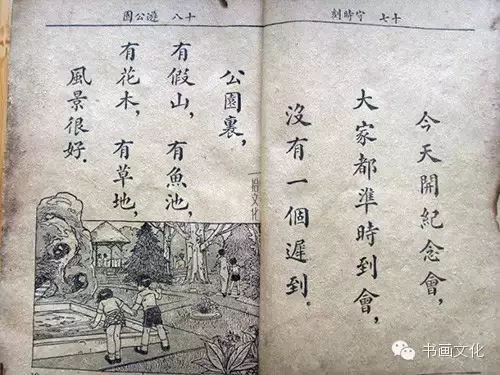 十七 守時刻
今天開紀念會,
大家都準時到會,
沒有一個遲到。
十八 遊公園
公園裏,
有假山,有魚池,
有花木,有草地,
風景很好.
书画文化